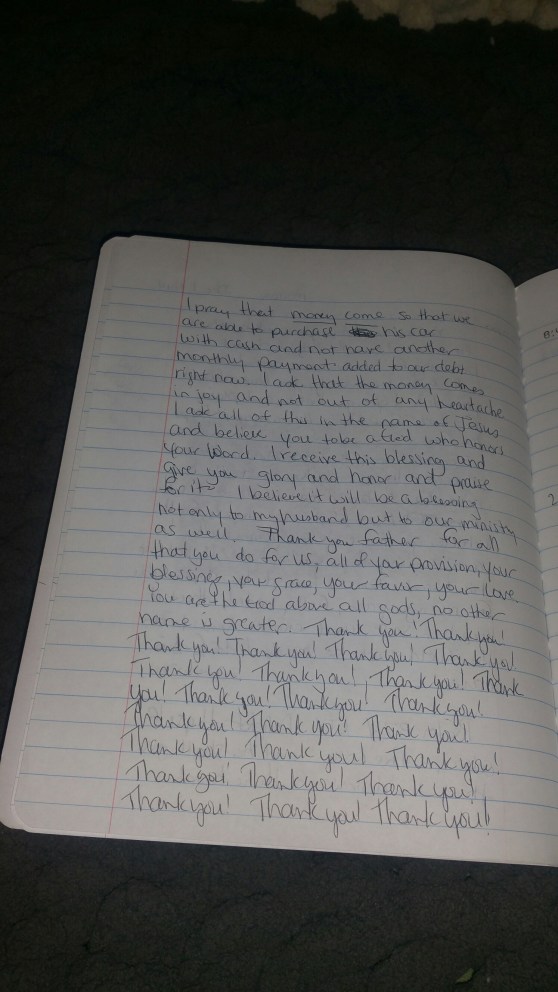 I pray that money come so that we
are able to purchase his car
with cash and not have another
monthly payment added to our debt
right now. I ask that the money comes
in joy and not out of any heartache
I ask all of this in the name of Jesus
and believe you to be a God who honors
your word. I receive this blessing and
give you glory and honor and praise
for it. I believe it will be a blessing
not only to my husband but to our ministry
as well. Thank you father for all
that you do for us, all of your provision, your
blessings, your grace, your favor, your love.
You are the God above all gods, no other
name is greater. Thank you! Thank you!
Thank you! Thank you! Thank you! Thank you!
Thank you! Thank you! Thank you! Thank
you! Thank you! Thank you! Thank you!
Thank you! Thank you! Thank you!
Thank you! Thank you! Thank you!
Thank you! Thank you! Thank you!
Thank you! Thank you! Thank you!